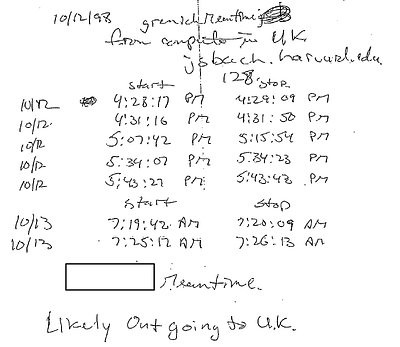 10/12/98 grenich Meantime
from computer in U.K
jsbach.harvard.edu
128.
start stop
10/12 4:28:17 PM 4:29:09 PM
10/12 4:31:16 PM 4:31:50 PM
10/12 5:07:42 PM 5:15:54 PM
10/12 5:34:07 PM 5:34:23 PM
10/12 5:43:27 PM 5:43:43 PM
start stop
10/13 7:19:42 AM 7:20:09 AM
10/13 7:25:12 AM 7:26:13 AM
Meantime.
Likely Out going to U.K.